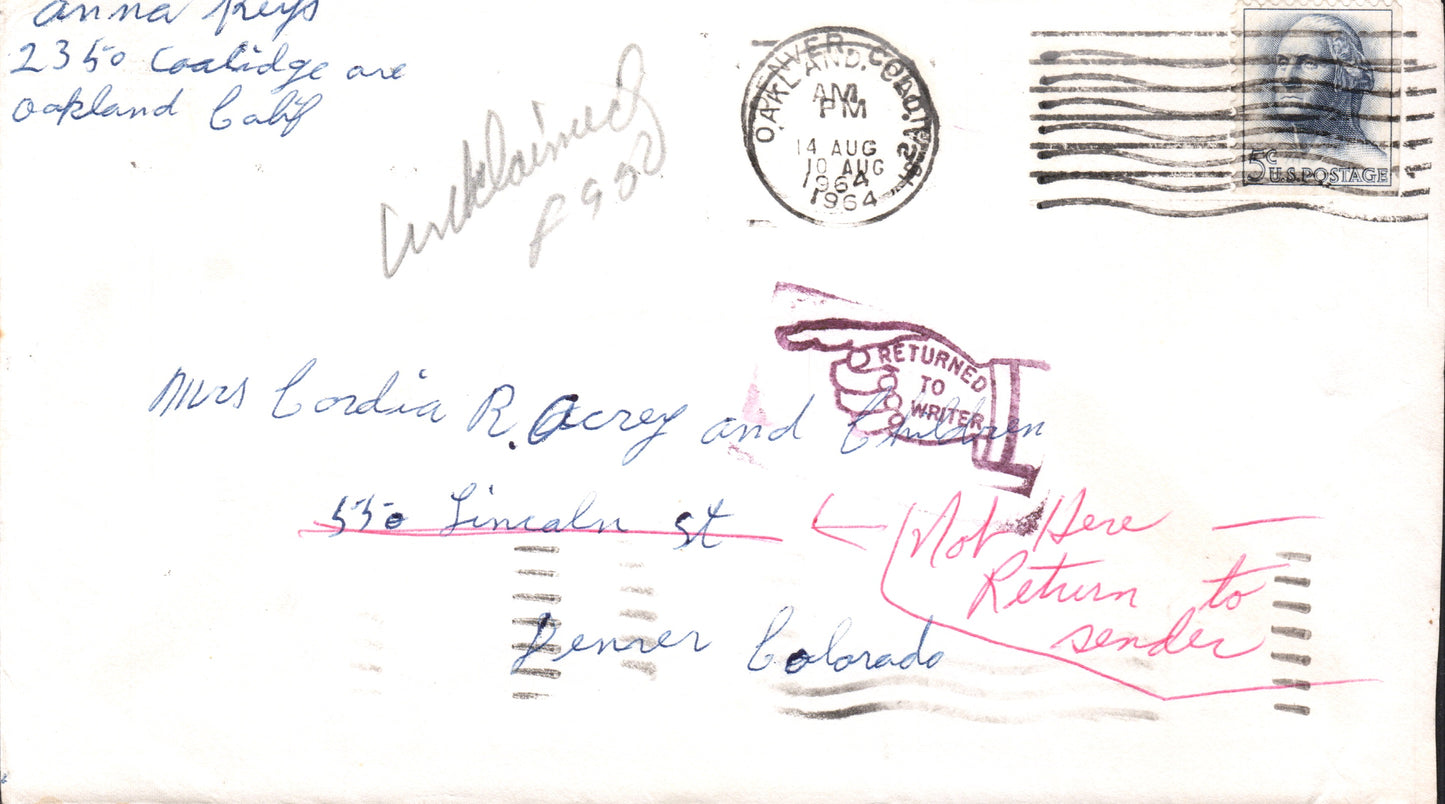 anna Keys
2350 Coalidge ave
Oakland Calif
Unclaimed
OAKLAND, CALIF.
DENVER, COLO.
AM
PM
14 AUG
10 AUG
1964
1964
5c
U.S. POSTAGE
RETURNED
TO
WRITER
Mrs Cordia R. Acrey and Children
550 Lincoln St
Not Here
Return to
sender
Denver Colorado